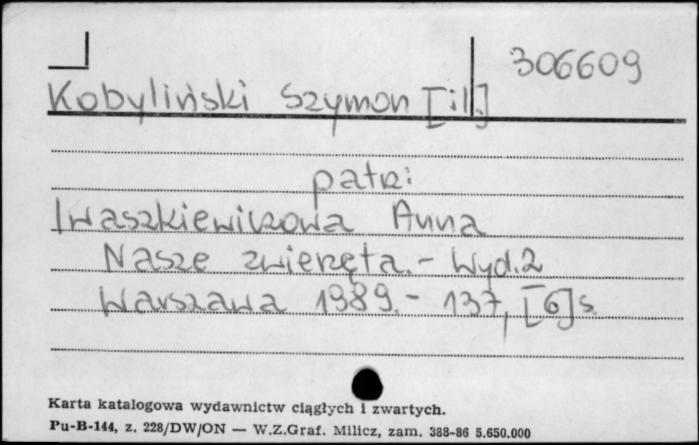 306609
Kobyliński Szymon [il.]
patrz:
Iwaszkiewiczowa Anna
Nasze zwierzęta. - Wyd. 2
Warszawa 1989. - 137, [6] s.
Karta katalogowa wydawnictw ciągłych i zwartych.
Pu-B-144, z. 228/DW/ON — W.Z.Graf. Milicz, zam. 388-86 5.650.000